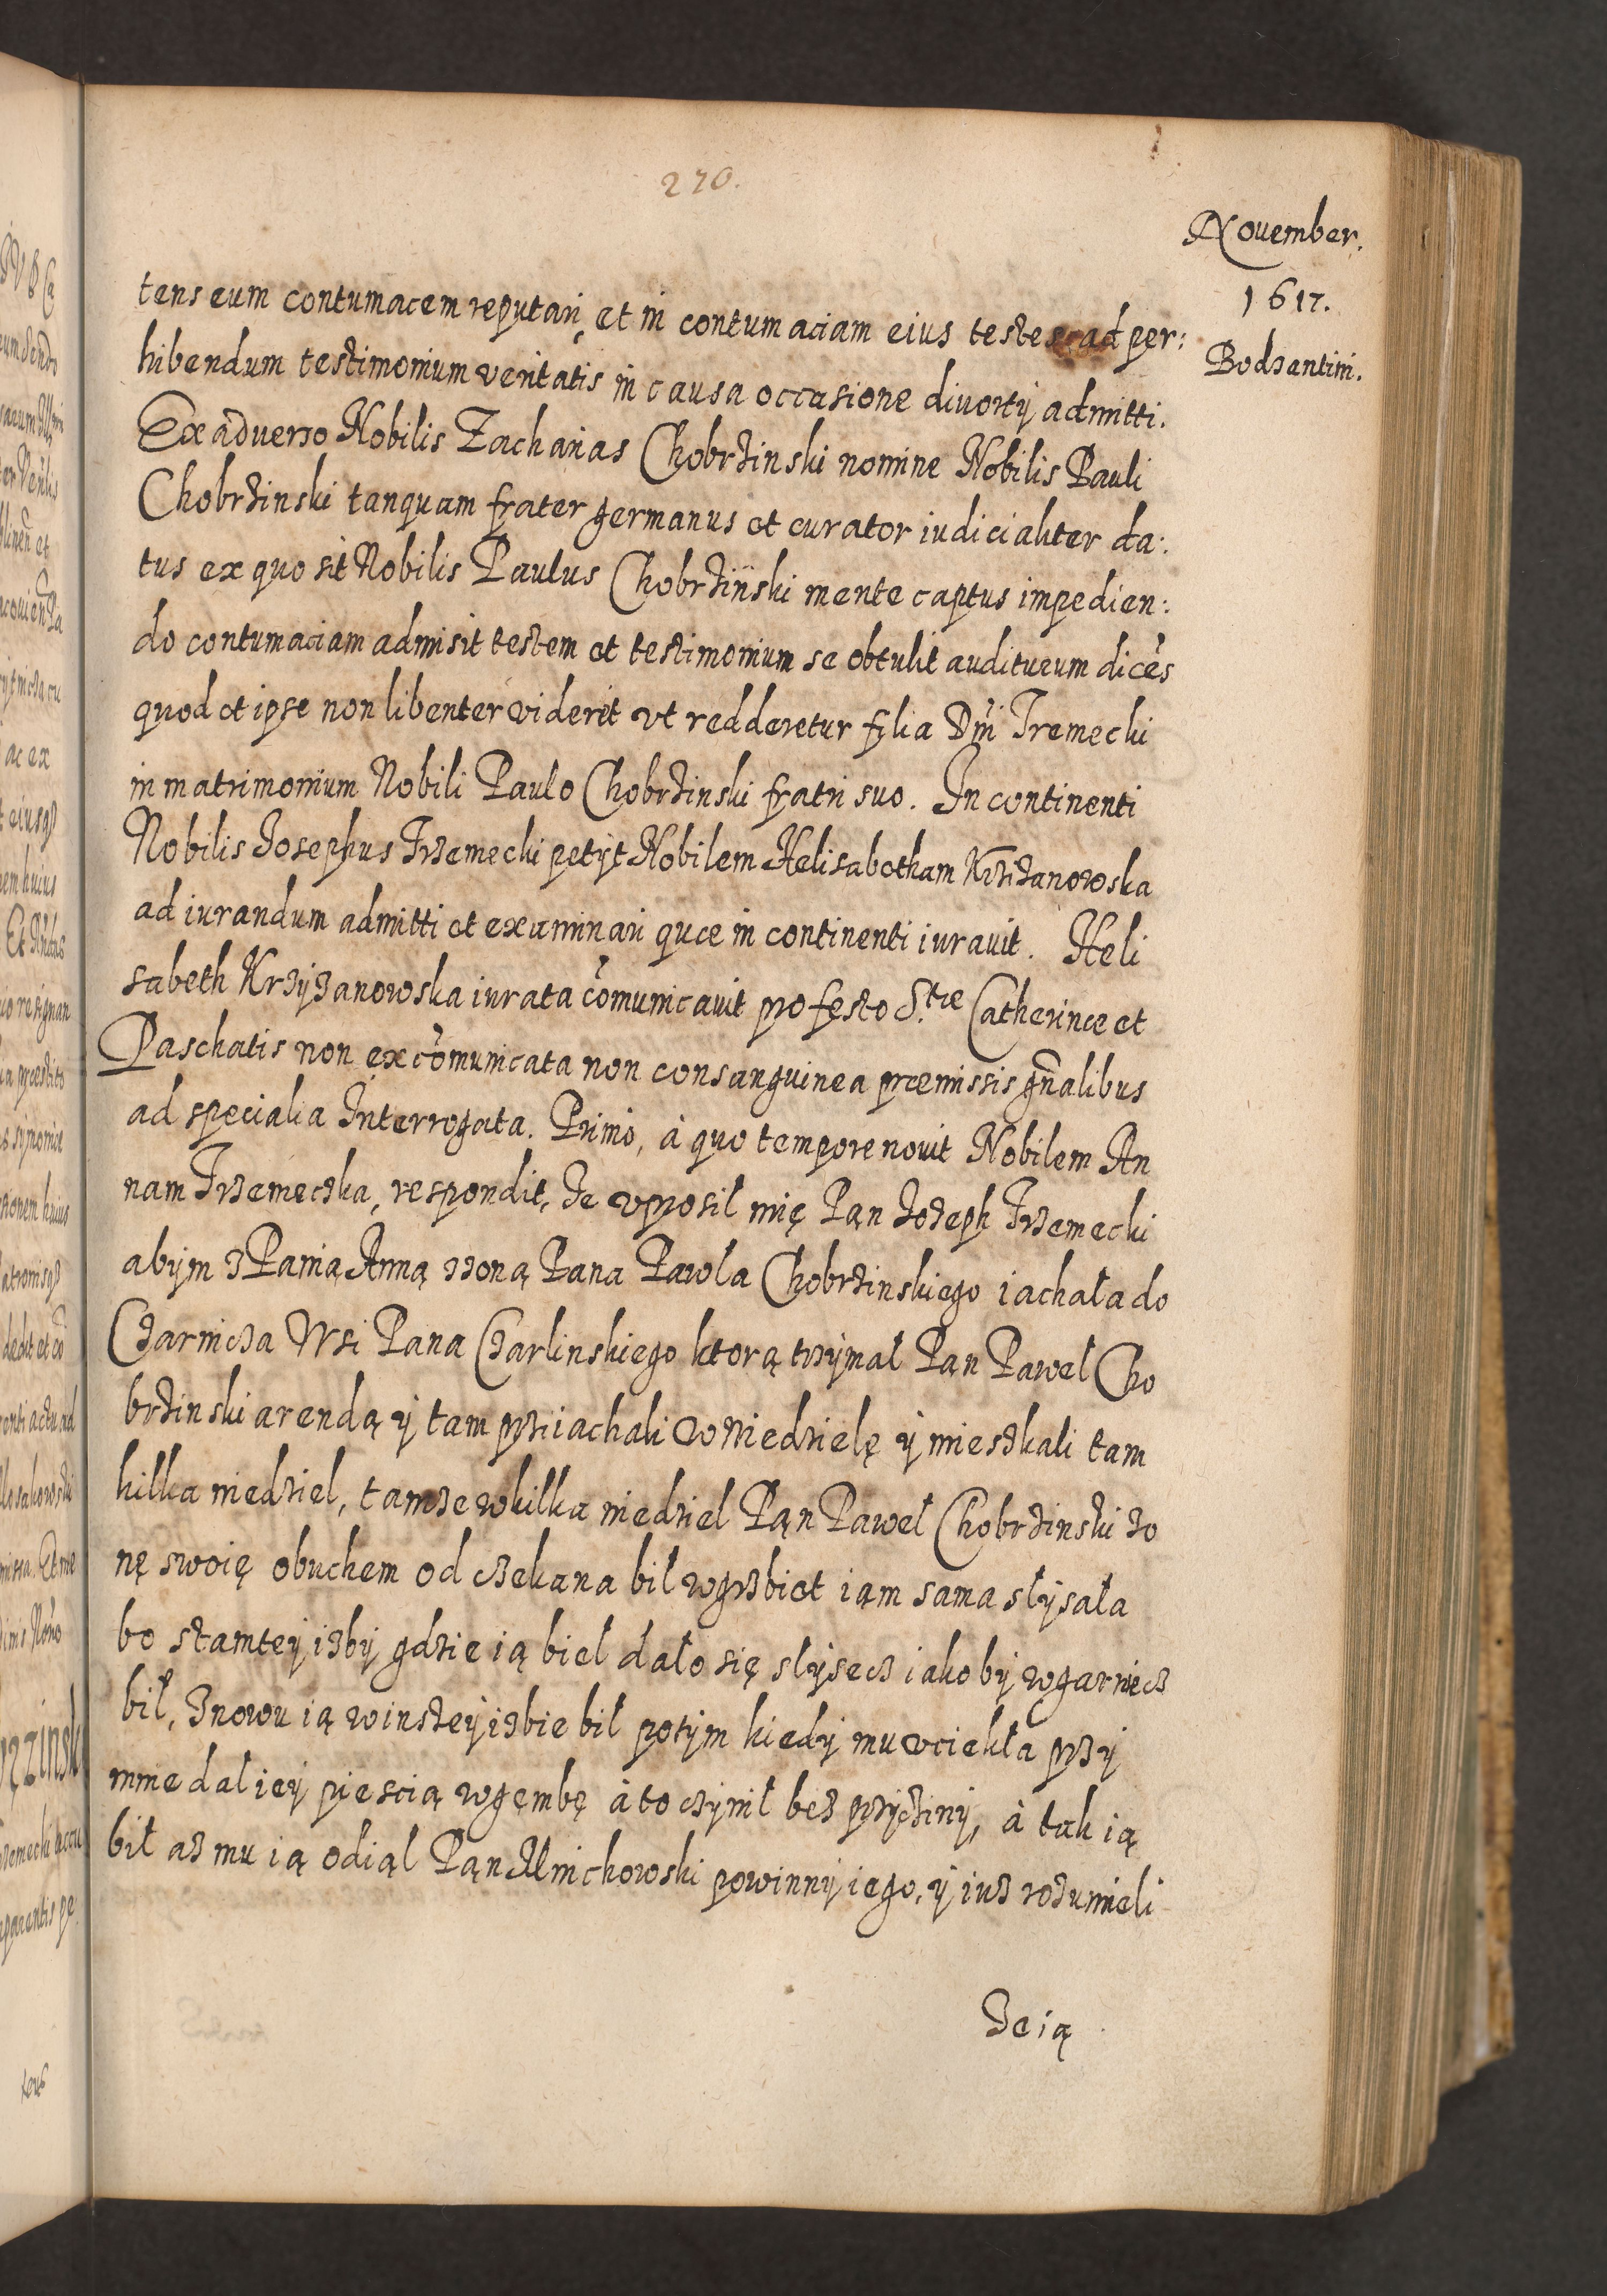 270.
November.
1617.
Bodzantini.
tens eum contumacem reputari et in contumaciam eius testes ad per:
hibendum testimonium veritatis in causa occasione diuortÿ admitti.
Ex aduerso Nobilis Zacharias Chobrzinski nomine Nobilis Pauli
Chobrzinski tanquam frater germanus et curator iudicialiter da:
tus ex quo sit Nobilis Paulus Chobrzinski mente captus impedien:
do contumaciam admisit testem et testimonium se obtulit auditurum dicēs
quod et ipse non libenter viderit vt redderetur filia Dni Tremecki
in matrimonium Nobili Paulo Chobrzinski fratri suo. In continenti
Nobilis Josephus Trzemecki petÿt Nobilem Helisabetham Krzizanowska
ad iurandum admitti et examinari quæ in continenti iurauit. Heli
sabeth Krzÿzanowska iurata cōmunicauit pro festo S.tæ Catherinæ et
Paschatis non excōmunicata non consanguinea præmissis gnālibus
ad specialia Interrogata. Primo, à quo tempore nouit Nobilem An
nam Trzemeczka, respondit, Ze vprosil mię Pąn Jozeph Trzemecki
abÿm z Panią Anną zoną Pana Pawla Chobrzinskiego iachała do
Czarnicza Wsi Pana Czarlinskiego ktorą trzÿmał Pąn Paweł Cho
brzinski arendą ÿ tam prziiachali w Niedzielę ÿ mieszkali tam
kilka niedziel, tamze w kilka niedziel Pąn Paweł Chobrzinski zo
nę swoię obuchem od czekana bił w grzbiet iąm sama slÿsała
bo z tamteÿ izbÿ gdzie ią bieł dało się slÿsecz iako bÿ w garniecz
bił, znowu ią w inszeÿ izbie bil potÿm kiedÿ mu vciekła przÿ
mnie dal ieÿ piescią w gęmbę à to czÿnił bez przÿczinÿ, à tak ią
bił az mu ią odiąl Pąn Minchowski powinnÿ iego, ÿ iuz rozumieli
ze ią